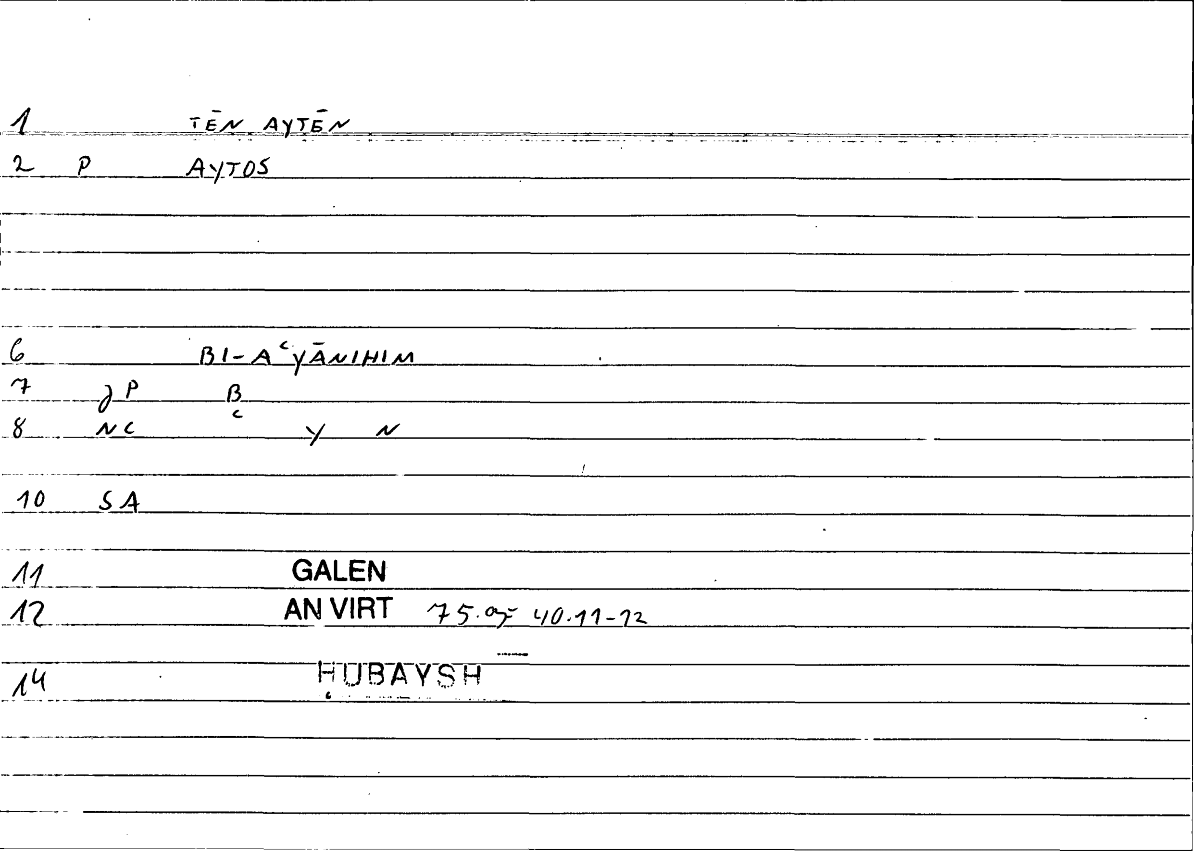 1 TĒN AYTĒN
2 P AYTOS
6 BI-AʿYĀNIHIM
7 P B
8 NC ʿ Y N
10 SA
11 GALEN
12 AN VIRT 75. 40.11-12
14 ḤUBAYSH